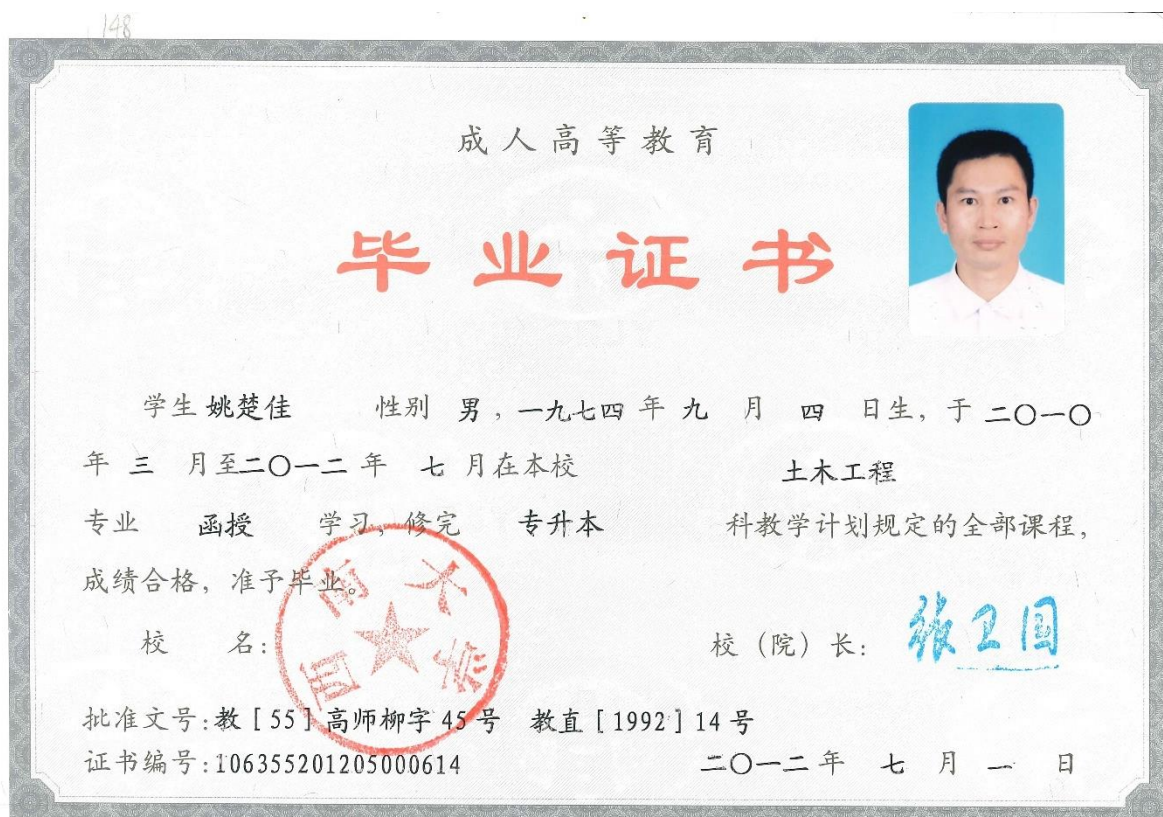 148
成人高等教育
毕业证书
学生 姚楚佳 性别 男，一九七四 年 九 月 四 日生，于 二〇一〇
年 三 月至二〇一二 年 七 月在本校 土木工程
专业 函授 学习，修完 专升本 科教学计划规定的全部课程，
成绩合格，准予毕业。
校 名： 西南大学
校（院）长： 张卫国
批准文号：教［55］高师柳字 45 号 教直［1992］14 号
证书编号：106355201205000614 二〇一二 年 七 月 一 日